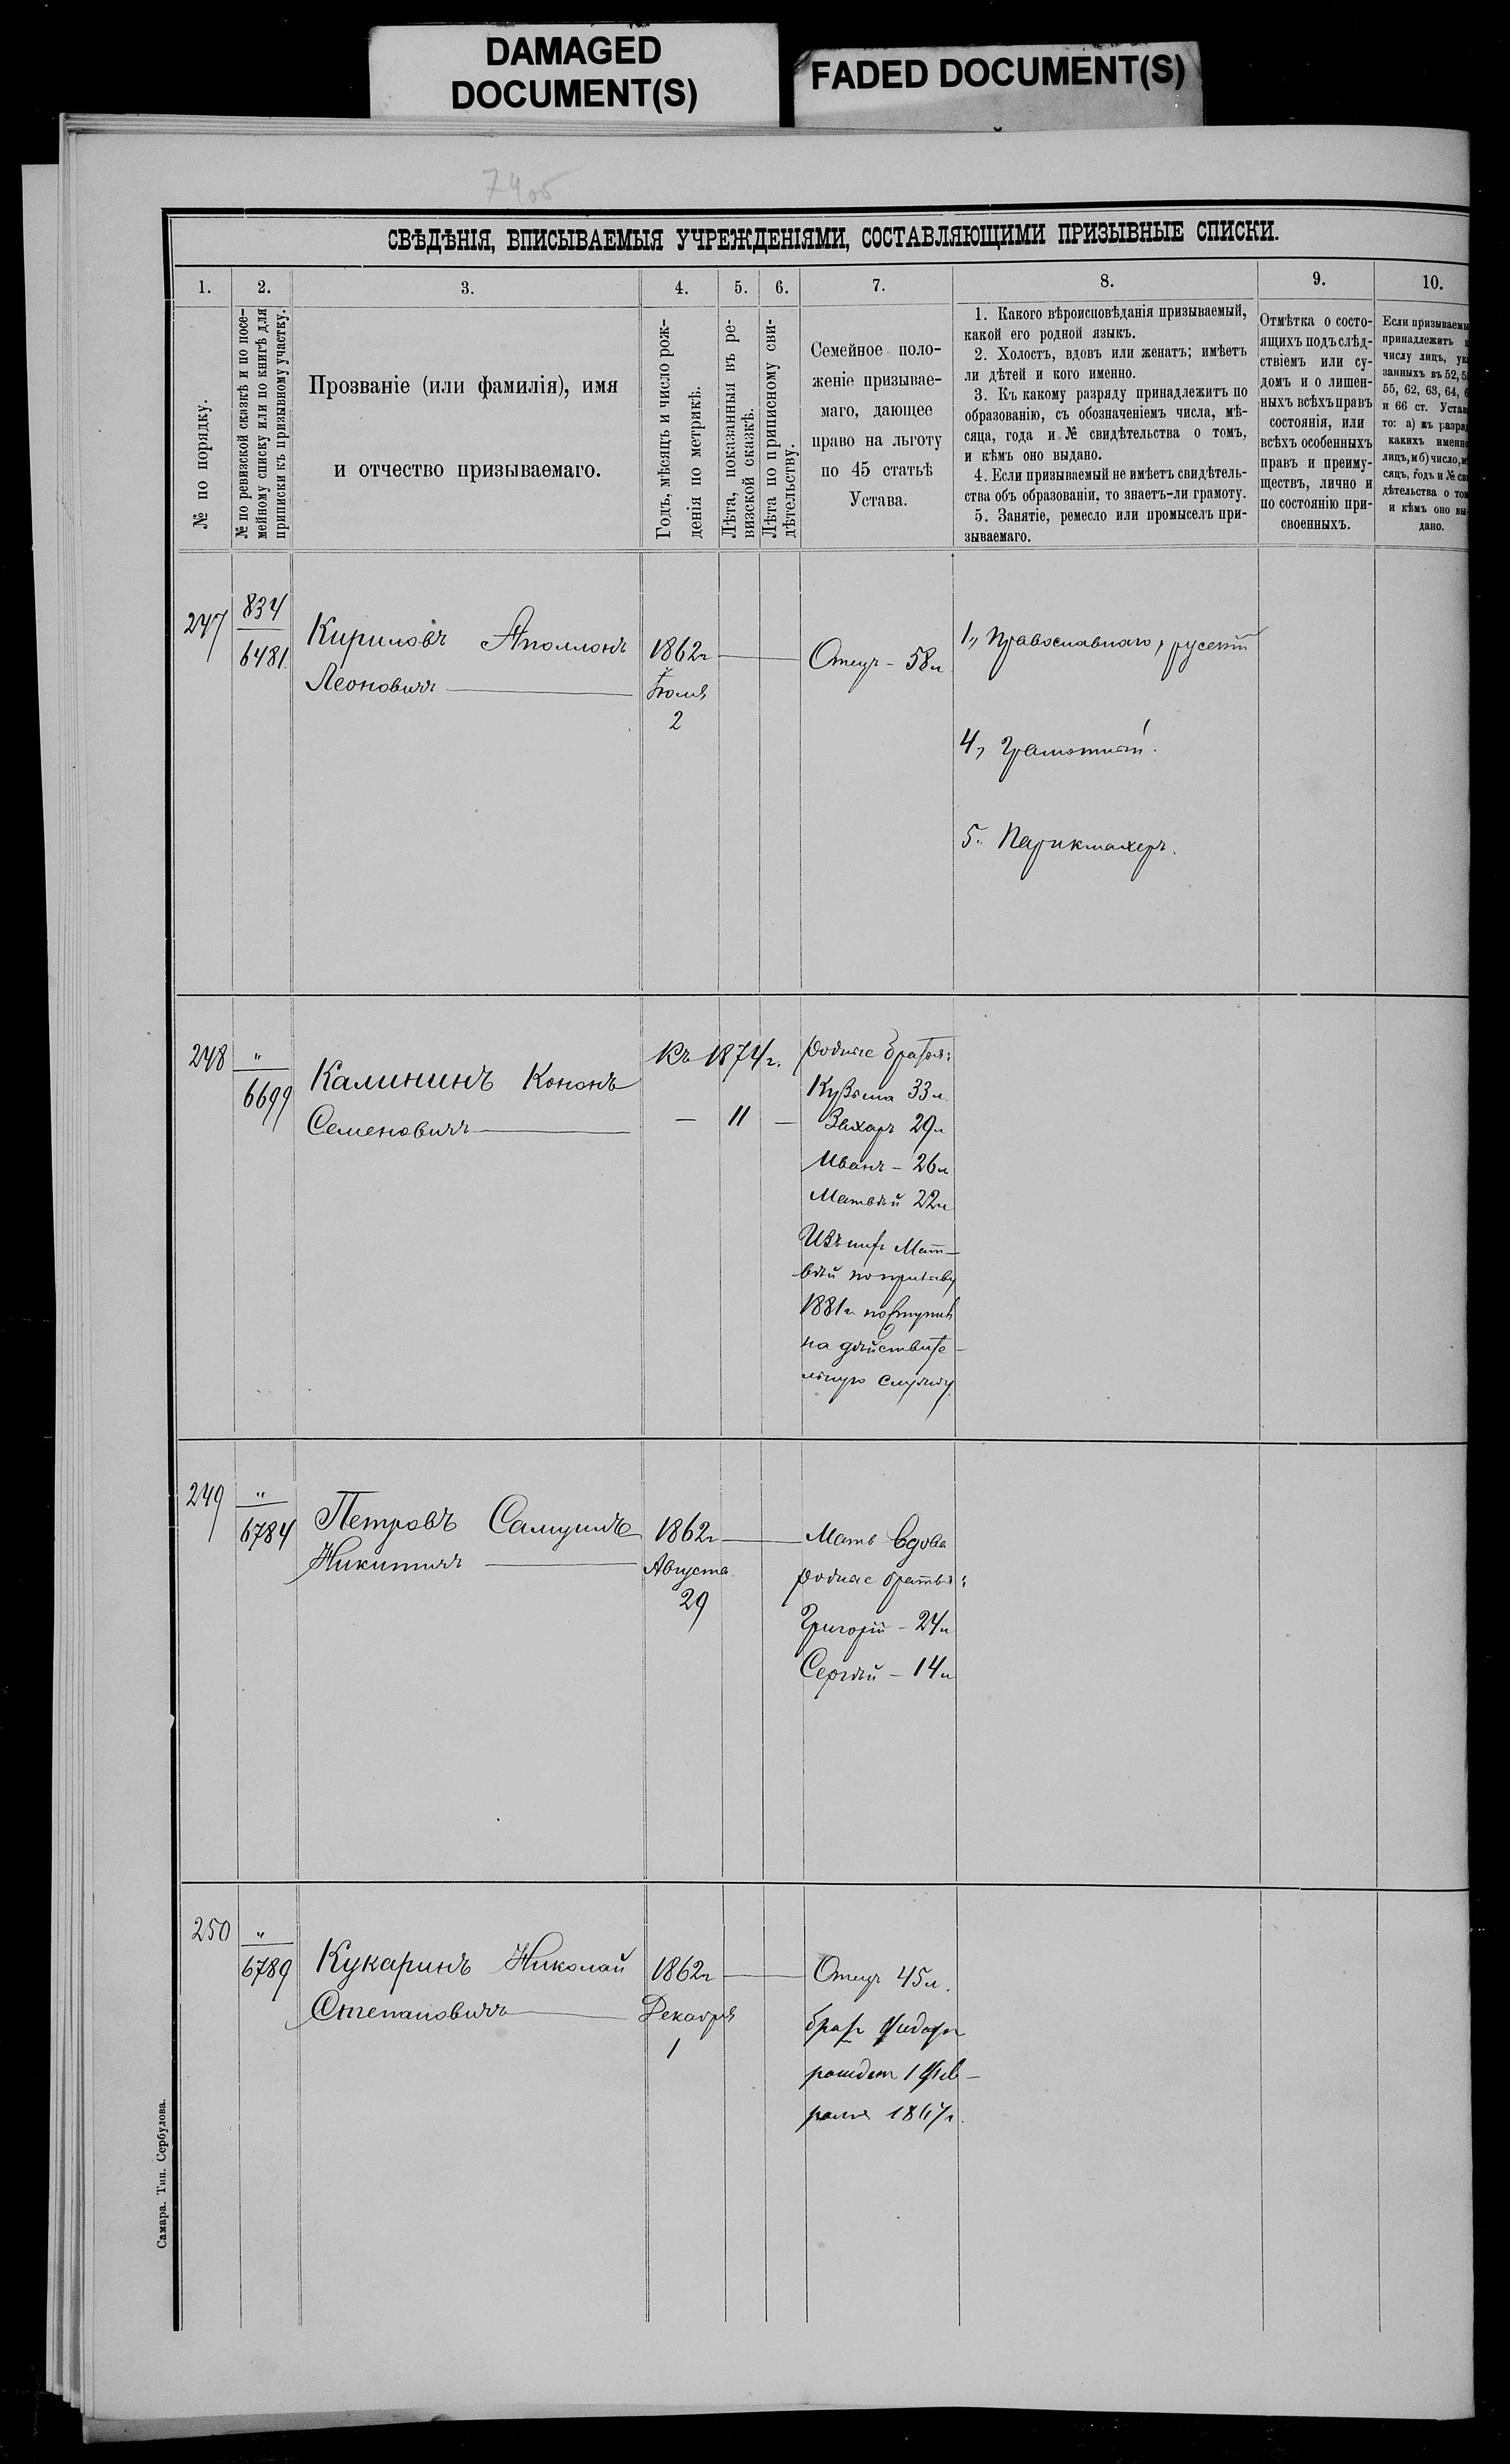 DAMAGED
DOCUMENT(S)
FADED DOCUMENT(S)
СВѢДѢНІЯ, ВПИСЫВАЕМЫЯ УЧРЕЖДЕНІЯМИ, СОСТАВЛЯЮЩИМИ ПРИЗЫВНЫЕ СПИСКИ.
1.
2.
3.
4.
5.
6.
7.
8.
9.
10.
№ по порядку.
№ по ревизской сказкѣ и по посе-
мейному списку или по книгѣ для
приписки къ призывному участку.
Прозваніе (или фамилія), имя
и отчество призываемаго.
Годъ, мѣсяцъ и число рож-
денія по метрикѣ.
Лѣта, показанныя въ ре-
визской сказкѣ.
Лѣта по приписному сви-
дѣтельству.
Семейное поло-
женіе призывае-
маго, дающее
право на льготу
по 45 статьѣ
Устава.
1. Какого вѣроисповѣданія призываемый,
какой его родной языкъ.
2. Холостъ, вдовъ или женатъ; имѣетъ
ли дѣтей и кого именно.
3. Къ какому разряду принадлежитъ по
образованію, съ обозначеніемъ числа, мѣ-
сяца, года и № свидѣтельства о томъ,
и кѣмъ оно выдано.
4. Если призываемый не имѣетъ свидѣтель-
ства объ образованіи, то знаетъ-ли грамоту.
5. Занятіе, ремесло или промыселъ при-
зываемаго.
Отмѣтка о состо-
ящихъ подъ слѣд-
ствіемъ или су-
домъ и о лишен-
ныхъ всѣхъ правъ
состоянія, или
всѣхъ особенныхъ
правъ и преиму-
ществъ, лично и
по состоянію при-
своенныхъ.
Если призываемы
принадлежитъ
числу лицъ, ука
занныхъ въ 52, 5
55, 62, 63, 64, 6
и 66 ст. Устав
то: а) къ разряд
какихъ именно
лицъ, и б) число, мѣ
сяцъ, годъ и № сви
дѣтельства о том
и кѣмъ оно вы-
дано.
247
834
6481.
Кириловъ Аполлонъ
Леоновичъ
1862г
Іюля
2
Отецъ - 58л
1,, Православнаго, русскій
4, Грамотный.
5. Парикмахеръ.
248
"
6699
Калининъ Кононъ
Семеновичъ
Къ 1874г.
— 11 —
родные братья:
Кузьма 33л.
Захаръ 29л
Иванъ - 26л
Матвѣй 22л
Изъ нихъ Мат-
вѣй по призыву
1881г. поступилъ
на дѣйствите-
льную службу.
249
"
6784
Петровъ Самуилъ
Никитичъ
1862г
Августа
29
Мать вдова
родные братья:
Григорій - 24л
Сергѣй - 14л
250
"
6789
Кукаринъ Николай
Степановичъ
1862г
Декабря
1
Отецъ 45л.
братъ Федоръ
рожден 1 Фев-
раля 1867г.
Самара. Тип. Сербулова.